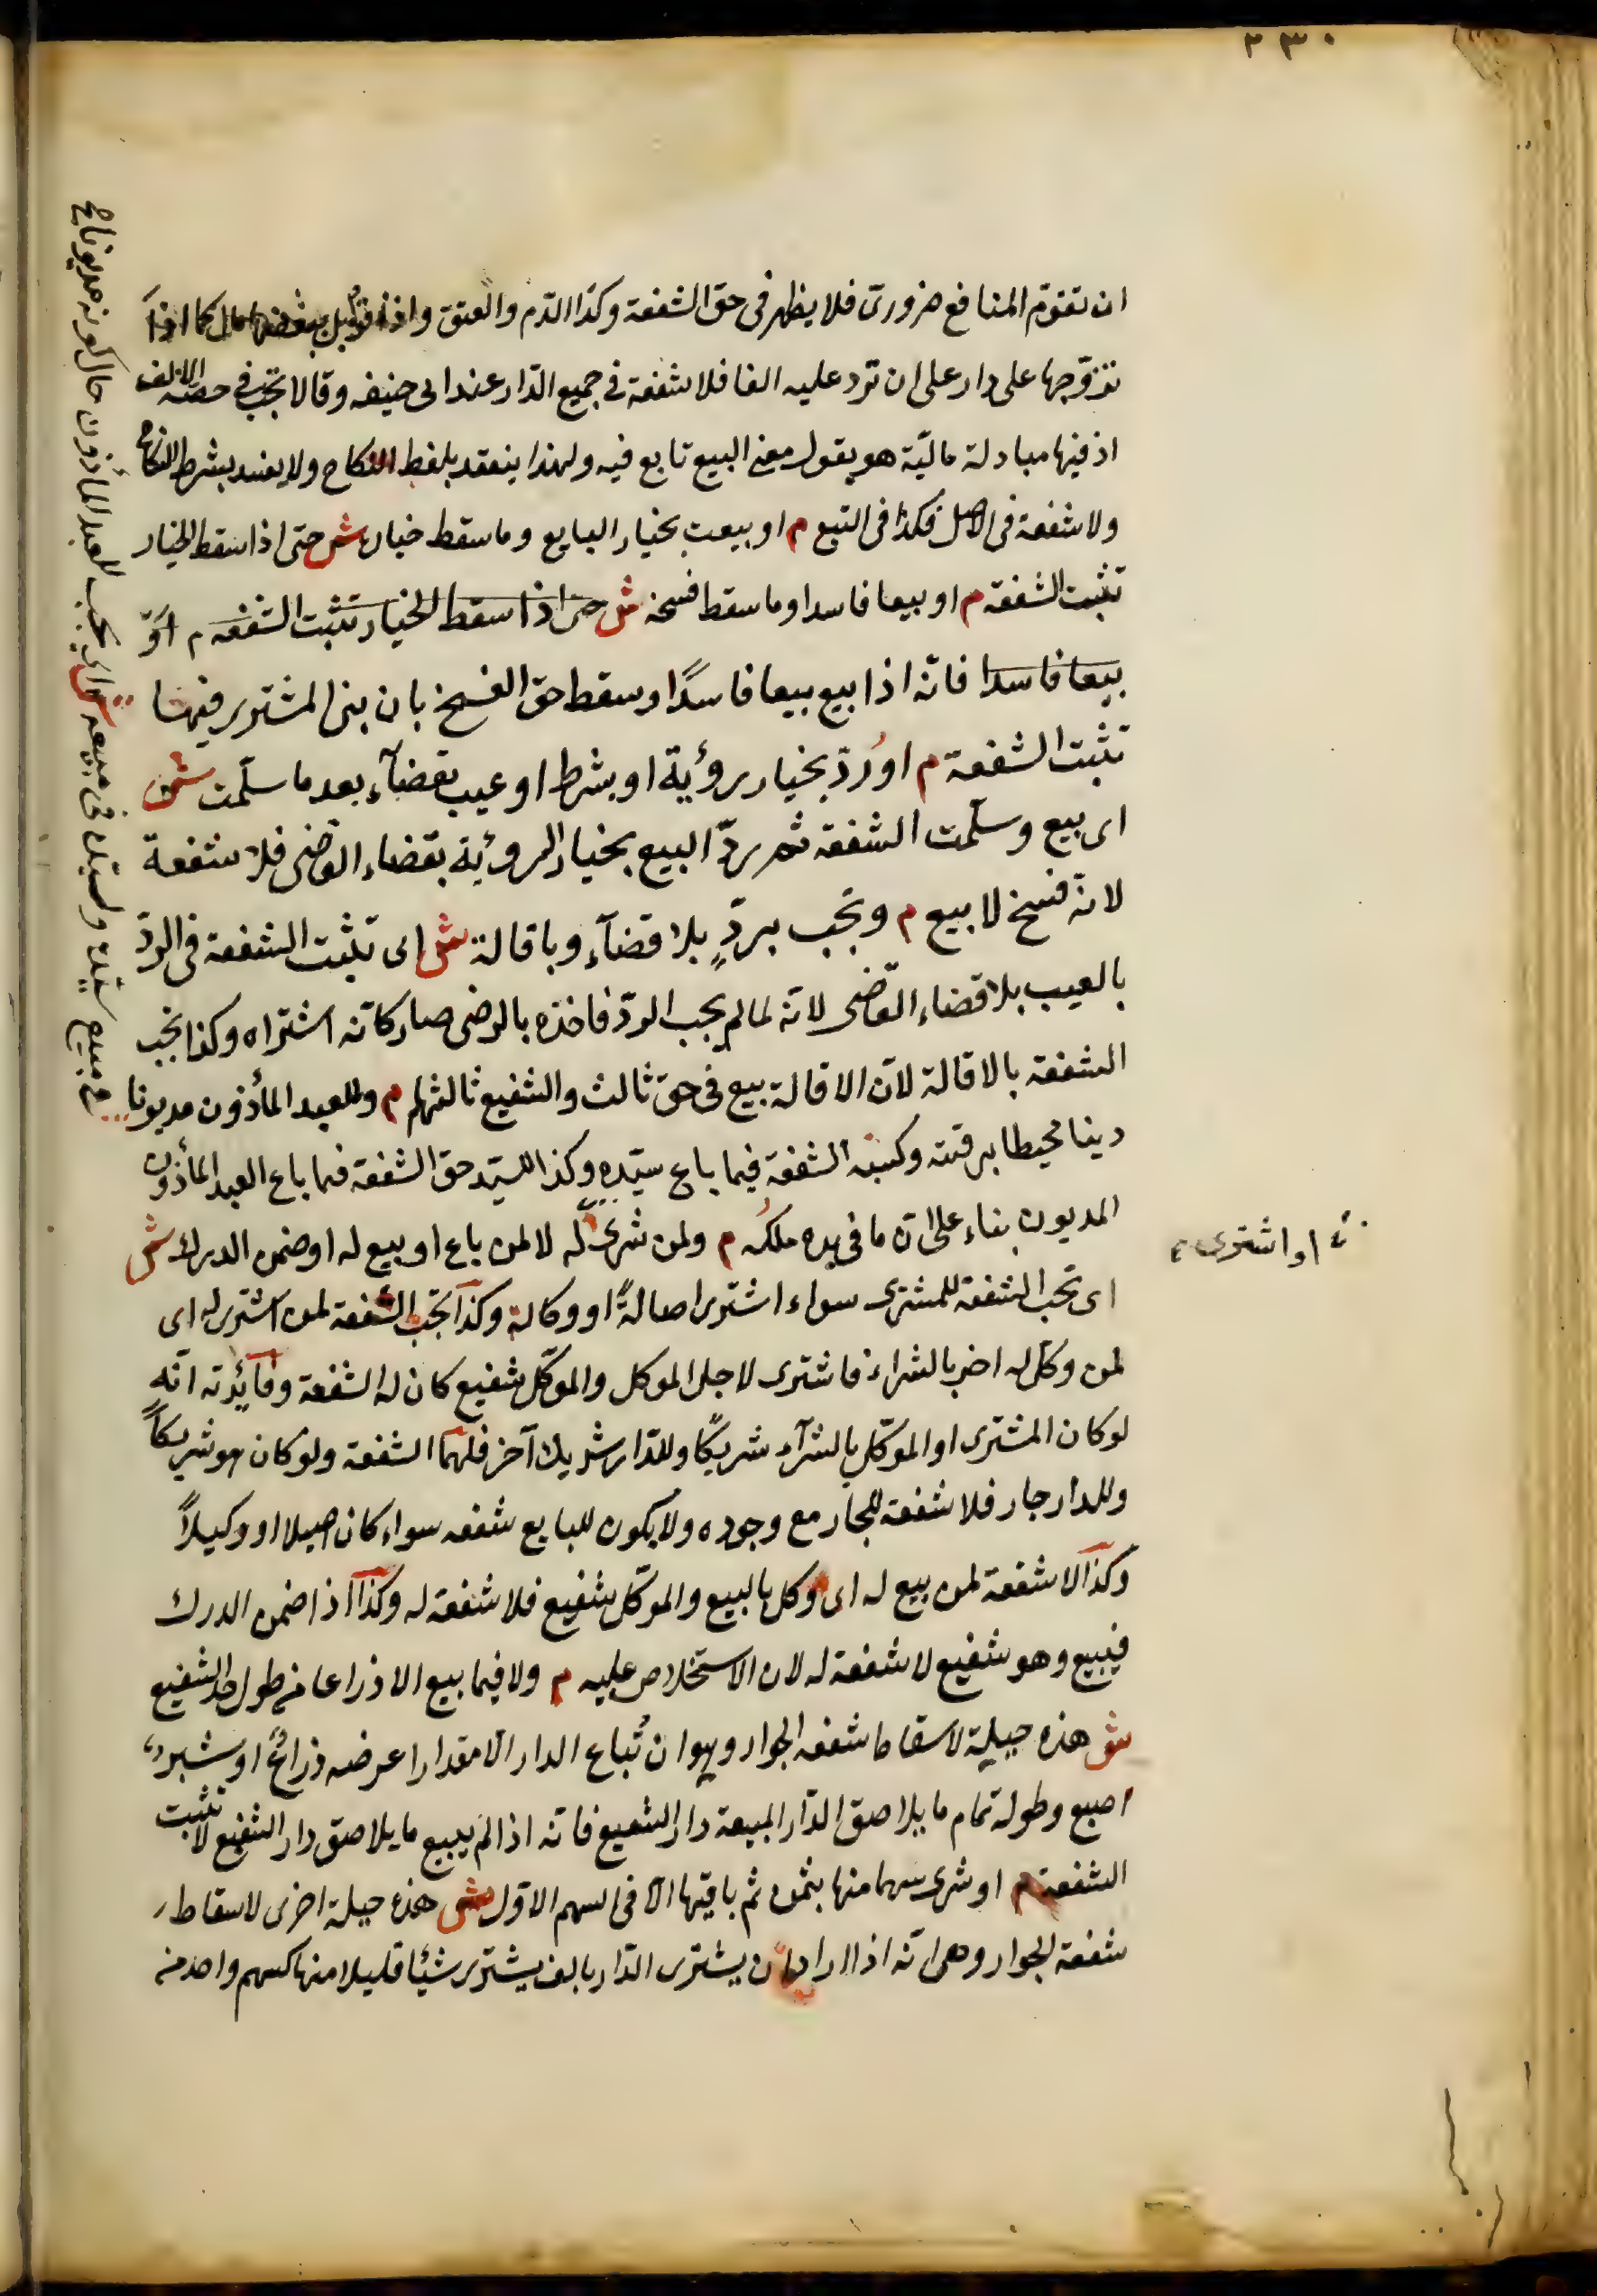 ٢٣٠
ان تقوّم المنافع ضرورى فلا يظهر فى حق الشفعة وكذا الدّم والعتق واذا قوبل ببعضها مال كما اذا
تزوّجها على دار على ان ترد عليه الفا فلا شفعة فى جميع الدّار عند ابى حنيفه وقالا تجب فى حصّة الالف
اذ فيها مبادلة ماليّة هو يقول معنى البيع تابع فيه ولهذا ينعقد بلفظ النكاح ولا يفسد بشرط النكاح
ولا شفعة فى الاصل فكذا فى التبع م او بيعت بخيار البايع وما سقط خياره ش حتى اذا سقط الخيار
تثبت الشفعة م او بيعا فاسدا وما سقط فسخه ش حتى اذا سقط الخيار تثبت الشفعه م او
بيعا فاسدا فانّه اذا بيع بيعا فاسدًا وسقط حق الفسخ بان بنى المشترى فيها
تثبت الشفعة م او رُدّ بخيار رؤية او بشرط او عيب بقضآء بعد ما سلّمت ش
اى بيع وسلّمت الشفعة ثم ردّ البيع بخيار الرؤية بقضاء القاضى فلا شفعة
لانّه فسخ لا بيع م وتجب بردٍّ بلا قضآء وباقالة ش اى تثبت الشفعة فى الردّ
بالعيب بلا قضاء القاضى لانّه لما لم يجب الردّ فاخذه بالرضى صار كانّه اشتراه وكذا تجب
الشفعة بالاقالة لانّ الاقالة بيع فى حق ثالث والشفيع ثالثهما م وللعبد المأذون مديونا
دينا محيطا برقبته وكسبه الشفعة فيما باع سيّده وكذا للسيّد حق الشفعة فيما باع العبد المأذون
المديون بناء على انّ ما فى يده ملكُه م ولمن شرى له لا لمن باع او بيع له او ضمن الدرك ش
اى تجب الشفعة للمشترى سواء اشترى اصالةً او وكالة وكذا تجب الشفعة لمن اشترى له اى
لمن وكّل اخر بالشراء فاشترى لاجل الموكل والموكّل شفيع كان له الشفعة وفائدته انّه
لو كان المشترى او الموكّل بالشرآء شريكًا وللدّار شريك آخر فلهما الشفعة ولو كان هو شريكاً
وللدار جار فلا شفعة للجار مع وجوده ولا يكون للبايع شفعه سواء كان اصيلا او وكيلاً
وكذا لا شفعة لمن بيع له اى وكل بالبيع والموكّل شفيع فلا شفعة له وكذا اذا ضمن الدرك
فبيع وهو شفيع لا شفعة له لان الاستخلاص عليه م ولا فيما بيع الا ذراعا من طول حد الشفيع
ش هذه حيلة لاسقاط شفعه الجوار وهو ان تُباع الدار الا مقدارا عرضه ذراع او شبر او
اصبع وطوله تمام ما يلاصق الدّار المبيعة دار الشفيع فانّه اذا لم يبيع ما يلاصق دار الشفيع لا تثبت
الشفعة م او شرى سهما منها بثمن ثم باقيها الا فى السهم الاوّل ش هذه حيلة اخرى لاسقاط
شفعة الجوار وهى انّه اذا اراد ان يشترى الدّار بالف يشترى شيئا قليلا منها كسهم واحد من
او اشترى
ش اى يجب للعبد المأذون حال كونه مديونا
فى مبيع سيّده ولسيّده فى مبيعه